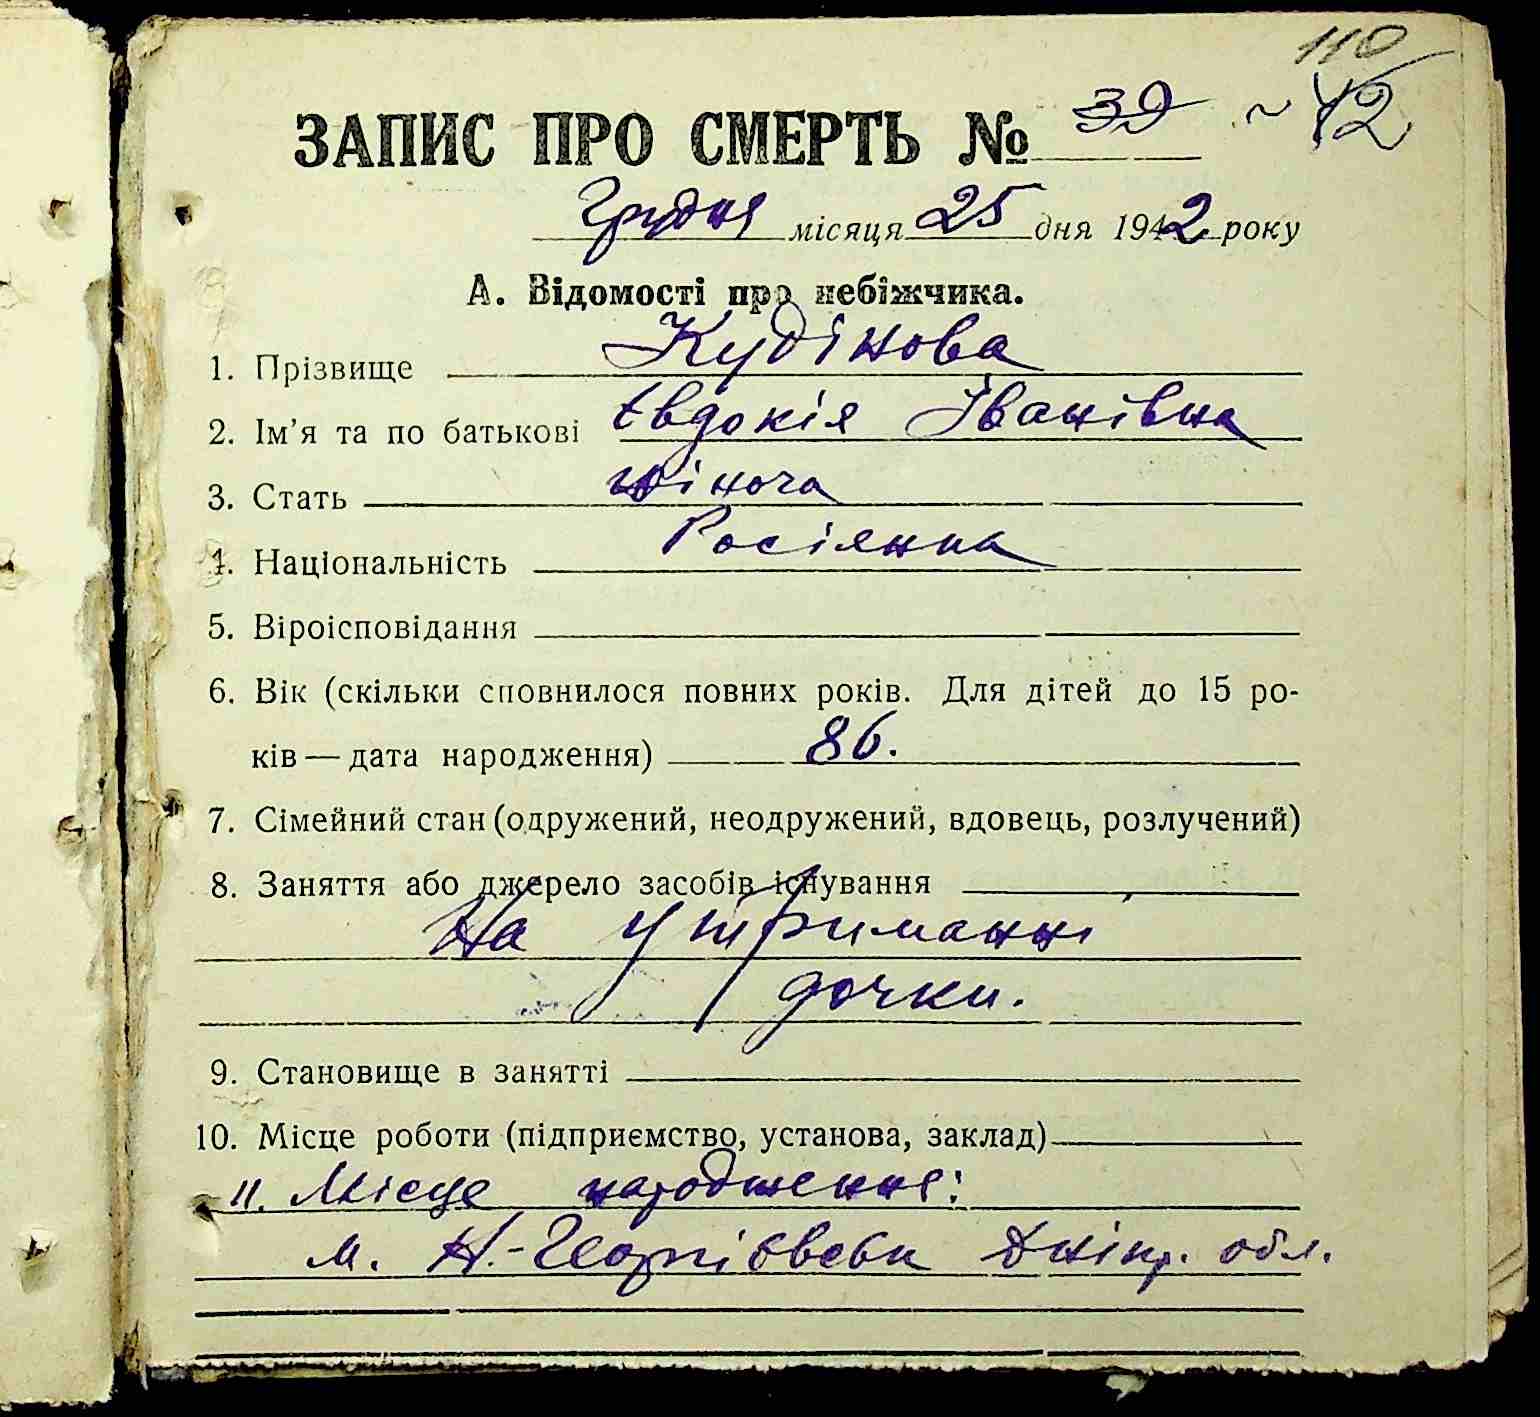 110
ЗАПИС ПРО СМЕРТЬ № 39 ~ 42
Грудня місяця 25 дня 1942 року
А. Відомості про небіжчика.
1. Прізвище Кудінова
2. Ім’я та по батькові Євдокія Іванівна
3. Стать жіноча
4. Національність Росіянка
5. Віроісповідання
6. Вік (скільки сповнилося повних років. Для дітей до 15 ро-
ків — дата народження) 86.
7. Сімейний стан (одружений, неодружений, вдовець, розлучений)
8. Заняття або джерело засобів існування
На утриманні
дочки.
9. Становище в занятті
10. Місце роботи (підприємство, установа, заклад)
11. Місце народження:
м. Н.-Георгієвськ Дніпр. обл.